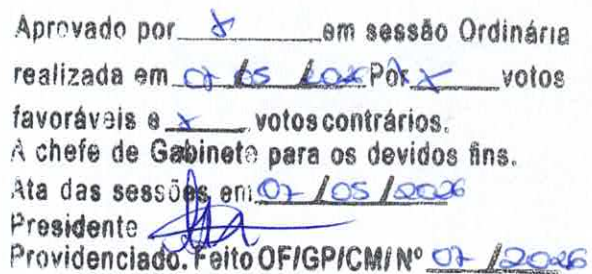 Aprovado por 8 em sessão Ordinária
realizada em 07/05/2026 Por x votos
favoráveis e x votos contrários.
A chefe de Gabinete para os devidos fins.
Ata das sessões em 07/05/2026
Presidente
Providenciado. Feito OF/GP/CMI Nº 07/2026